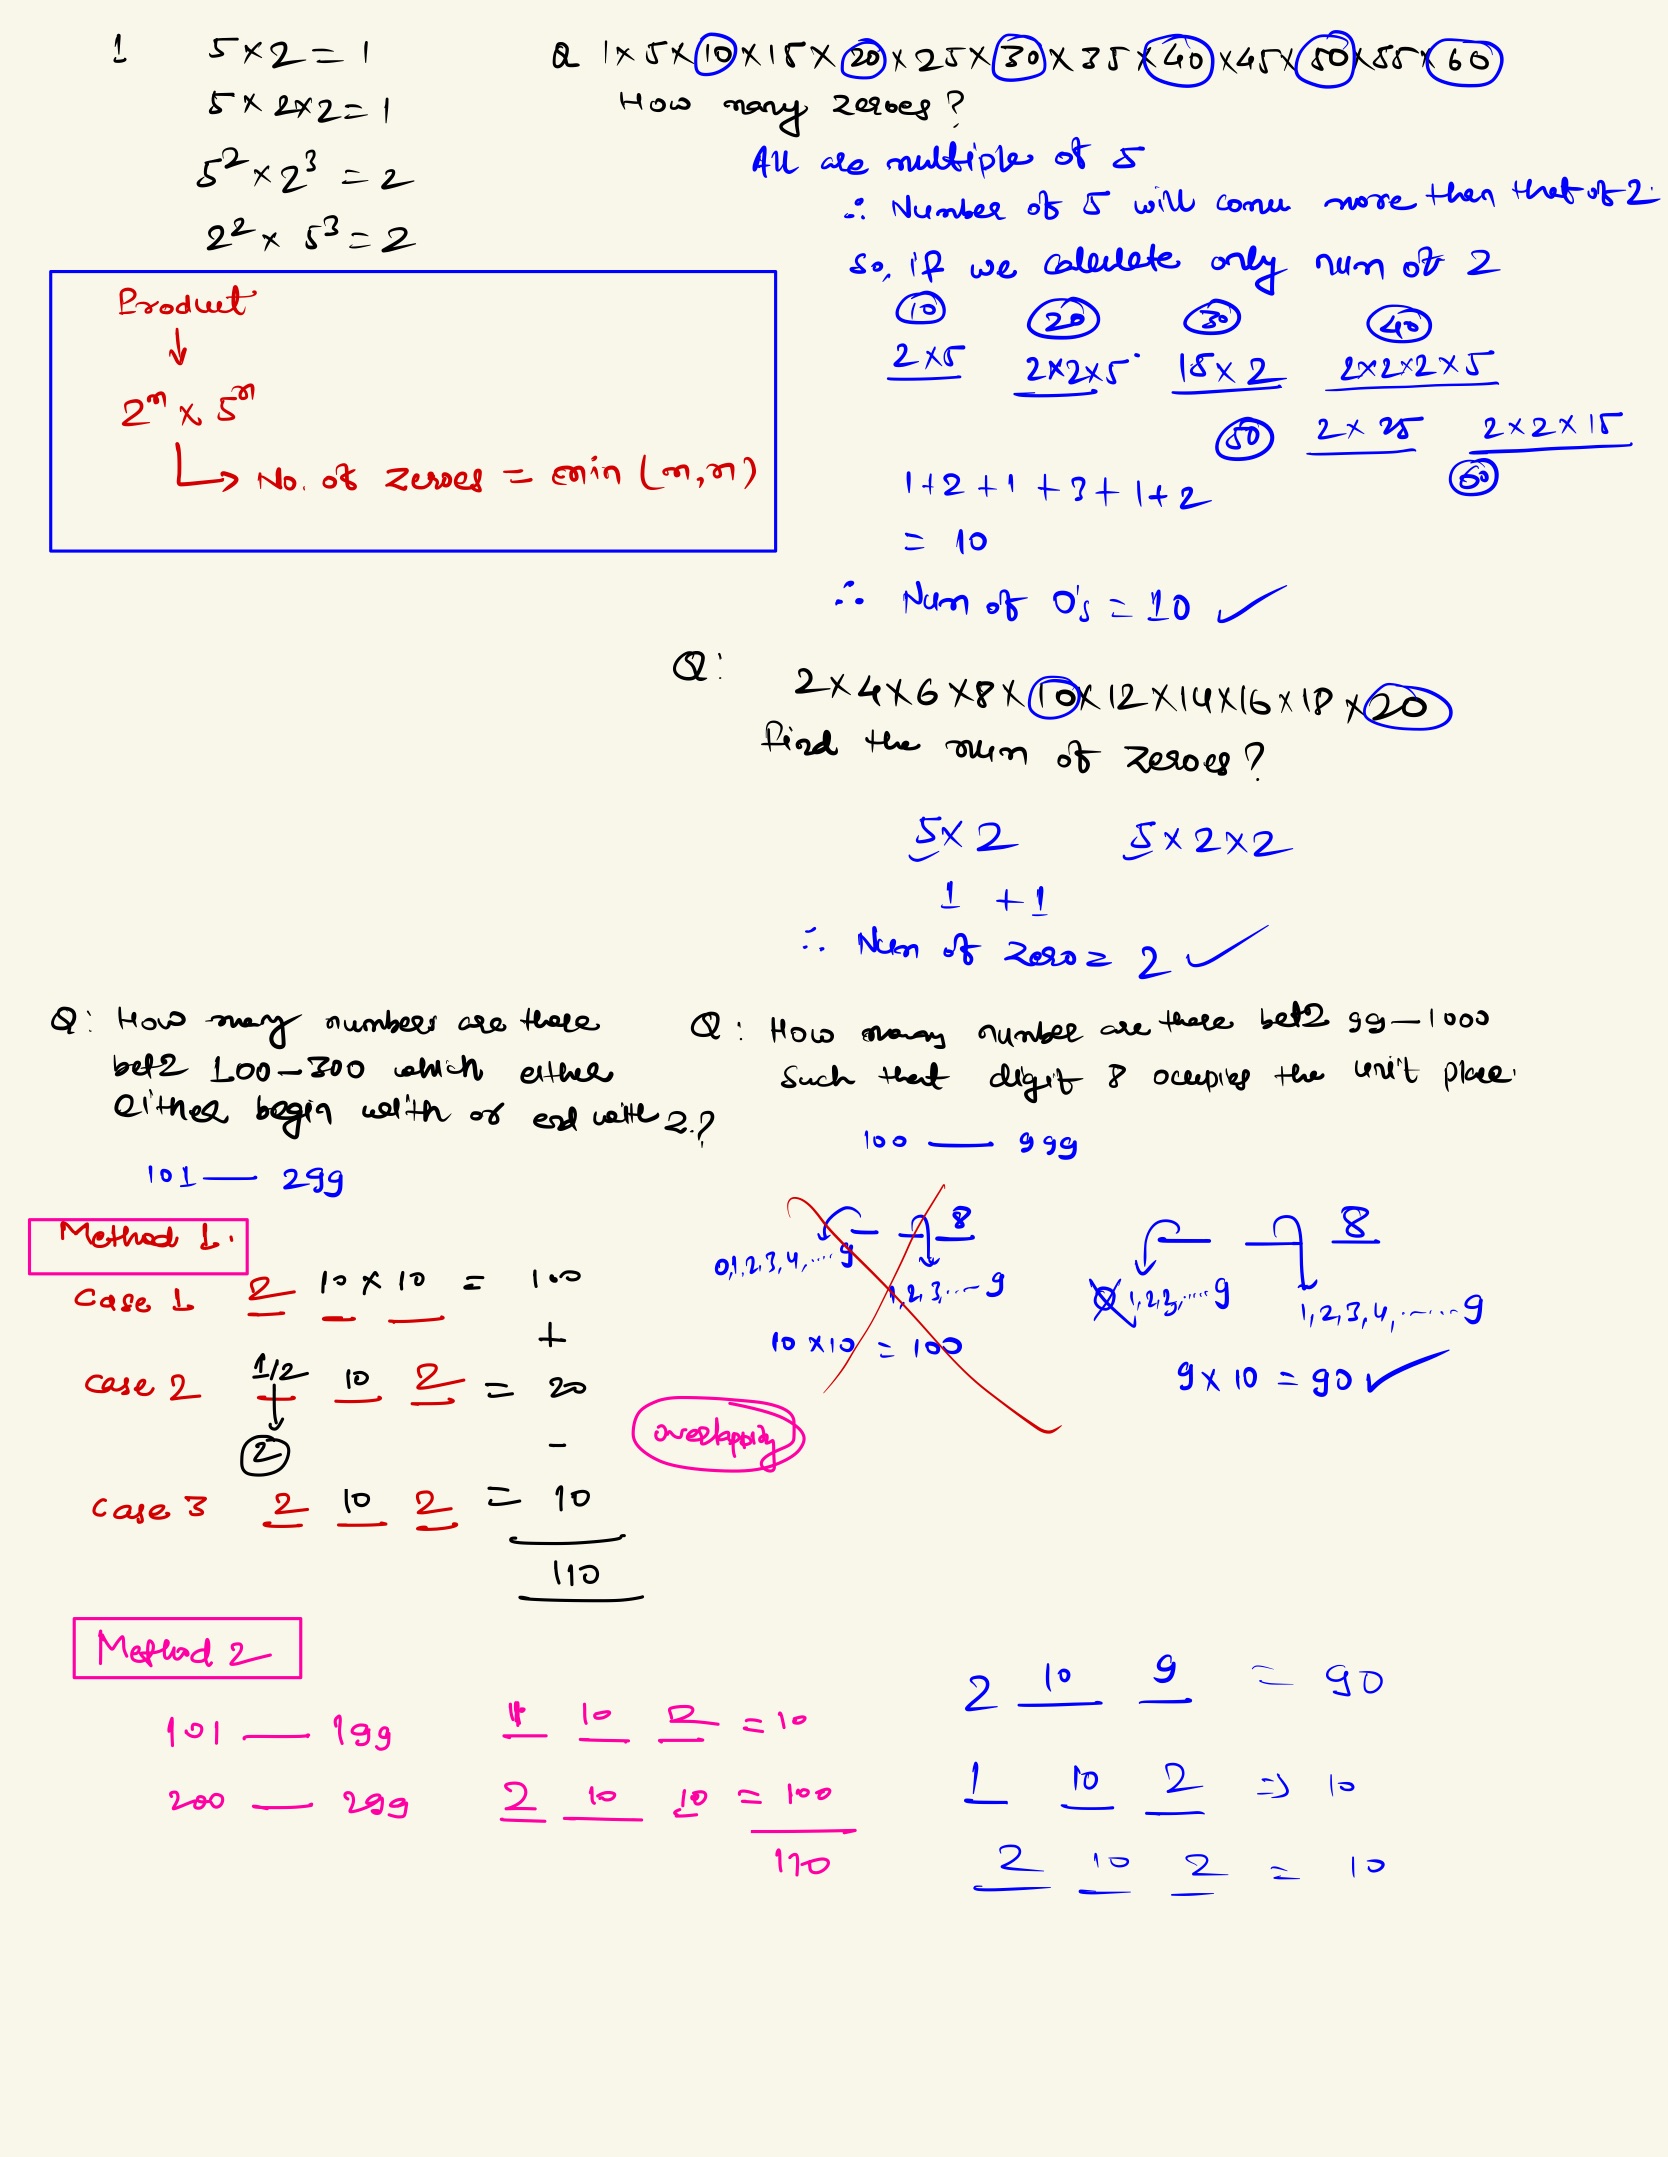 1
5×2 = 1
5×2×2 = 1
5² × 2³ = 2
2² × 5³ = 2
Product
↓
2ᵐ × 5ⁿ
↳ No. of zeroes = min (m,n)
Q 1×5×10×15×20×25×30×35×40×45×50×55×60
How many zeroes?
All are multiple of 5
∴ Number of 5 will come more than that of 2.
So, if we calculate only num of 2
10 20 30 40
2×5 2×2×5 15×2 2×2×2×5
50 2×25 2×2×15
60
1+2+1+3+1+2
= 10
∴ Num of 0's = 10 ✓
Q:
2×4×6×8×10×12×14×16×18×20
Find the num of zeroes?
5×2 5×2×2
1 +1
∴ Num of zero = 2 ✓
Q: How many numbers are there
bet2 100–300 which either
either begin with or end with 2.?
101 — 299
Method 1.
Case 1 2 10 × 10 = 100
+
Case 2 1/2 10 2 = 20
2
-
Case 3 2 10 2 = 10
110
overlapping
Q: How many number are there bet2 99–1000
Such that digit 8 occupies the unit place.
100 — 999
8
0,1,2,3,4,....9
1,2,3,...9
10×10 = 100
8
0 1,2,3,.....9
1,2,3,4,.......9
9×10 = 90 ✓
Method 2
101 — 199 1 10 2 = 10
200 — 299 2 10 10 = 100
110
2 10 9 = 90
1 10 2 => 10
2 10 2 = 10